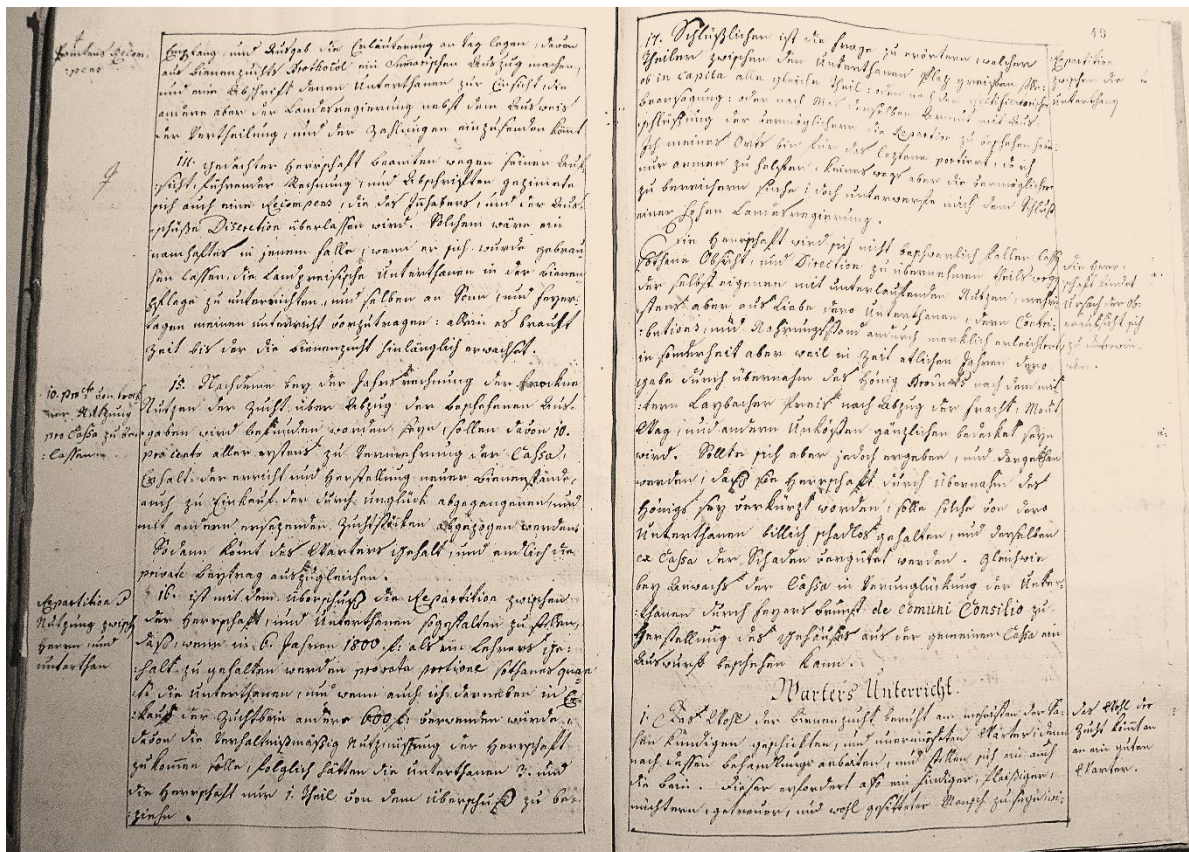 Empfang, und Ausgab die Erläuterung an tag legen, davon
aus Bienenzuchts Prothocol ein Sumarischen Auszug machen,
und eine Abschrift denen Unterthanen zur Einsicht, die
andere aber der Landesregierung nebst dem Ausweis
der Vertheilung, und der Zahlungen einzusenden kömt
14. gedachter Herrschaft Beamten wegen seiner Auf
:sicht, führender Rechnung, und Abschrifften gezimete
sich auch eine Recompens, die des Inhabers, und der Aus-
:schüße Discretion überlassen wird. Solchem wäre ein
namhaftes in jenem falle, wenn er sich wurde gebrau
:hen lassen, die Unterthanen in der Bienen
pflege zu unterrichten, und selben an Sonn, und feyer-
tagen meinen unterricht vorzutragen: allein es braucht
Zeit bis der die Bienenzucht hinlänglich erwachset.
10. pro cto von
ner Nutzung
pro Cassa zu
:lassen
15. Nachdeme bey der Jahrsrechnung der trockne
Nutzen der Zucht über Abzug der beschehenen Aus-
gaben wird befunden worden seyn, sollen davon 10.
pro cento aller erstens zu Vermehrung der Cassa.
Erhalt: der erricht: und Herstellung neuer Bienenstände,
auch zu Einkauf der durch unglück abgegangenen, und
mit andern ersezenden Zuchtstöcken abgezogen werden
Sodann kömt des Warters gehalt, und endlich die
private Beytrag auszugleichen.
Repartition
Nutzung zwisch
Herrn und
unterthan
16. ist mit dem überschuß die Repartition zwischen
der Herrschaft, und Unterthanen sogestalten zu stellen,
daß, wenn in 6. Jahren 1800 f: als ein Lehrers ge-
:halt zu gehalten werden privata portione sothanes quan
:ti die unterthanen, und wenn auch ich darneben in Er-
:kauf der Zuchtbien andere 600 f: verwenden würde,
davon die Verhaltnißmäßig Nutznissung der Herrschaft
zukommen solle, folglich hätten die unterthanen 3. und
die Herrschaft nur 1. Theil von dem überschuß zu be-
:ziehn.
49
17. Schlüßlichen ist die frage zu erörtern welcher
Theiler zwischen den Unterthanen Plaz greiffen solle:
ob in Capita alle gleiche theil: oder nach der
Repartition
zwischen die
unterthanen
:schlüssung der vermöglichern die Repartion zu beschehen hab:
Ich meines Orts bin für das leztere portiert, da ich
nur armen zu helfen, keines wegs aber die vermöglichere
zu bereichern suche; doch unterwerfe mich dem Schluß
einer hohen Landesregierung.
Die Herrschaft wird sich nicht beschwerlich fallen lassen
sothane Obsicht, und Direction zu übernehmen theils wegen
der selbst eigenen mit unterlaufenden Nutzen, mehri
:stens aber aus Liebe dero Unterthanen, deren Contri-
:butions, und Nahrungsstand andurch merklich erleichtert,
in sonderheit aber weil in Zeit etlichen Jahren dero
gabe durch übernehm des Hönig Products nach dem mit
:tern Laybacher Preis nach Abzug der fracht, Maut
Wag, und andern Unkosten gänzlichen bedecket seyn
wird. Sollte sich aber jedoch ergeben, und dargethan
werden, daß die Herrschaft durch übernahm des
Hönigs sey verkürzt worden, solle solche von dero
Unterthanen billich schadlos gehalten, und derselben
ex Cassa der Schaden vergütet werden. Gleichwie
bey Anwachs der Cassa in Verunglückung der Unter-
:thanen durch feyers brunst de comuni Consilio zu
Herstellung des gehäußes aus der gemeinen Cassa ein
Auswurf beschehen kann.
Warters Unterricht.
1. Das Wohl der Bienenzucht beruht am meisten der Sa-
:hen kündigen geschickten, und unermüdeten Warter, denn
nach dessen behandlungs anbauen, und stellen sich ein auch
die bien. Dieser erfordert also ein hündiger, fleißiger,
nüchtern, getreuer, und wohl gesitteter Mensch zu seyn, wi-
Das Wohl der
Zucht kömt an
an ein guten
Warter.